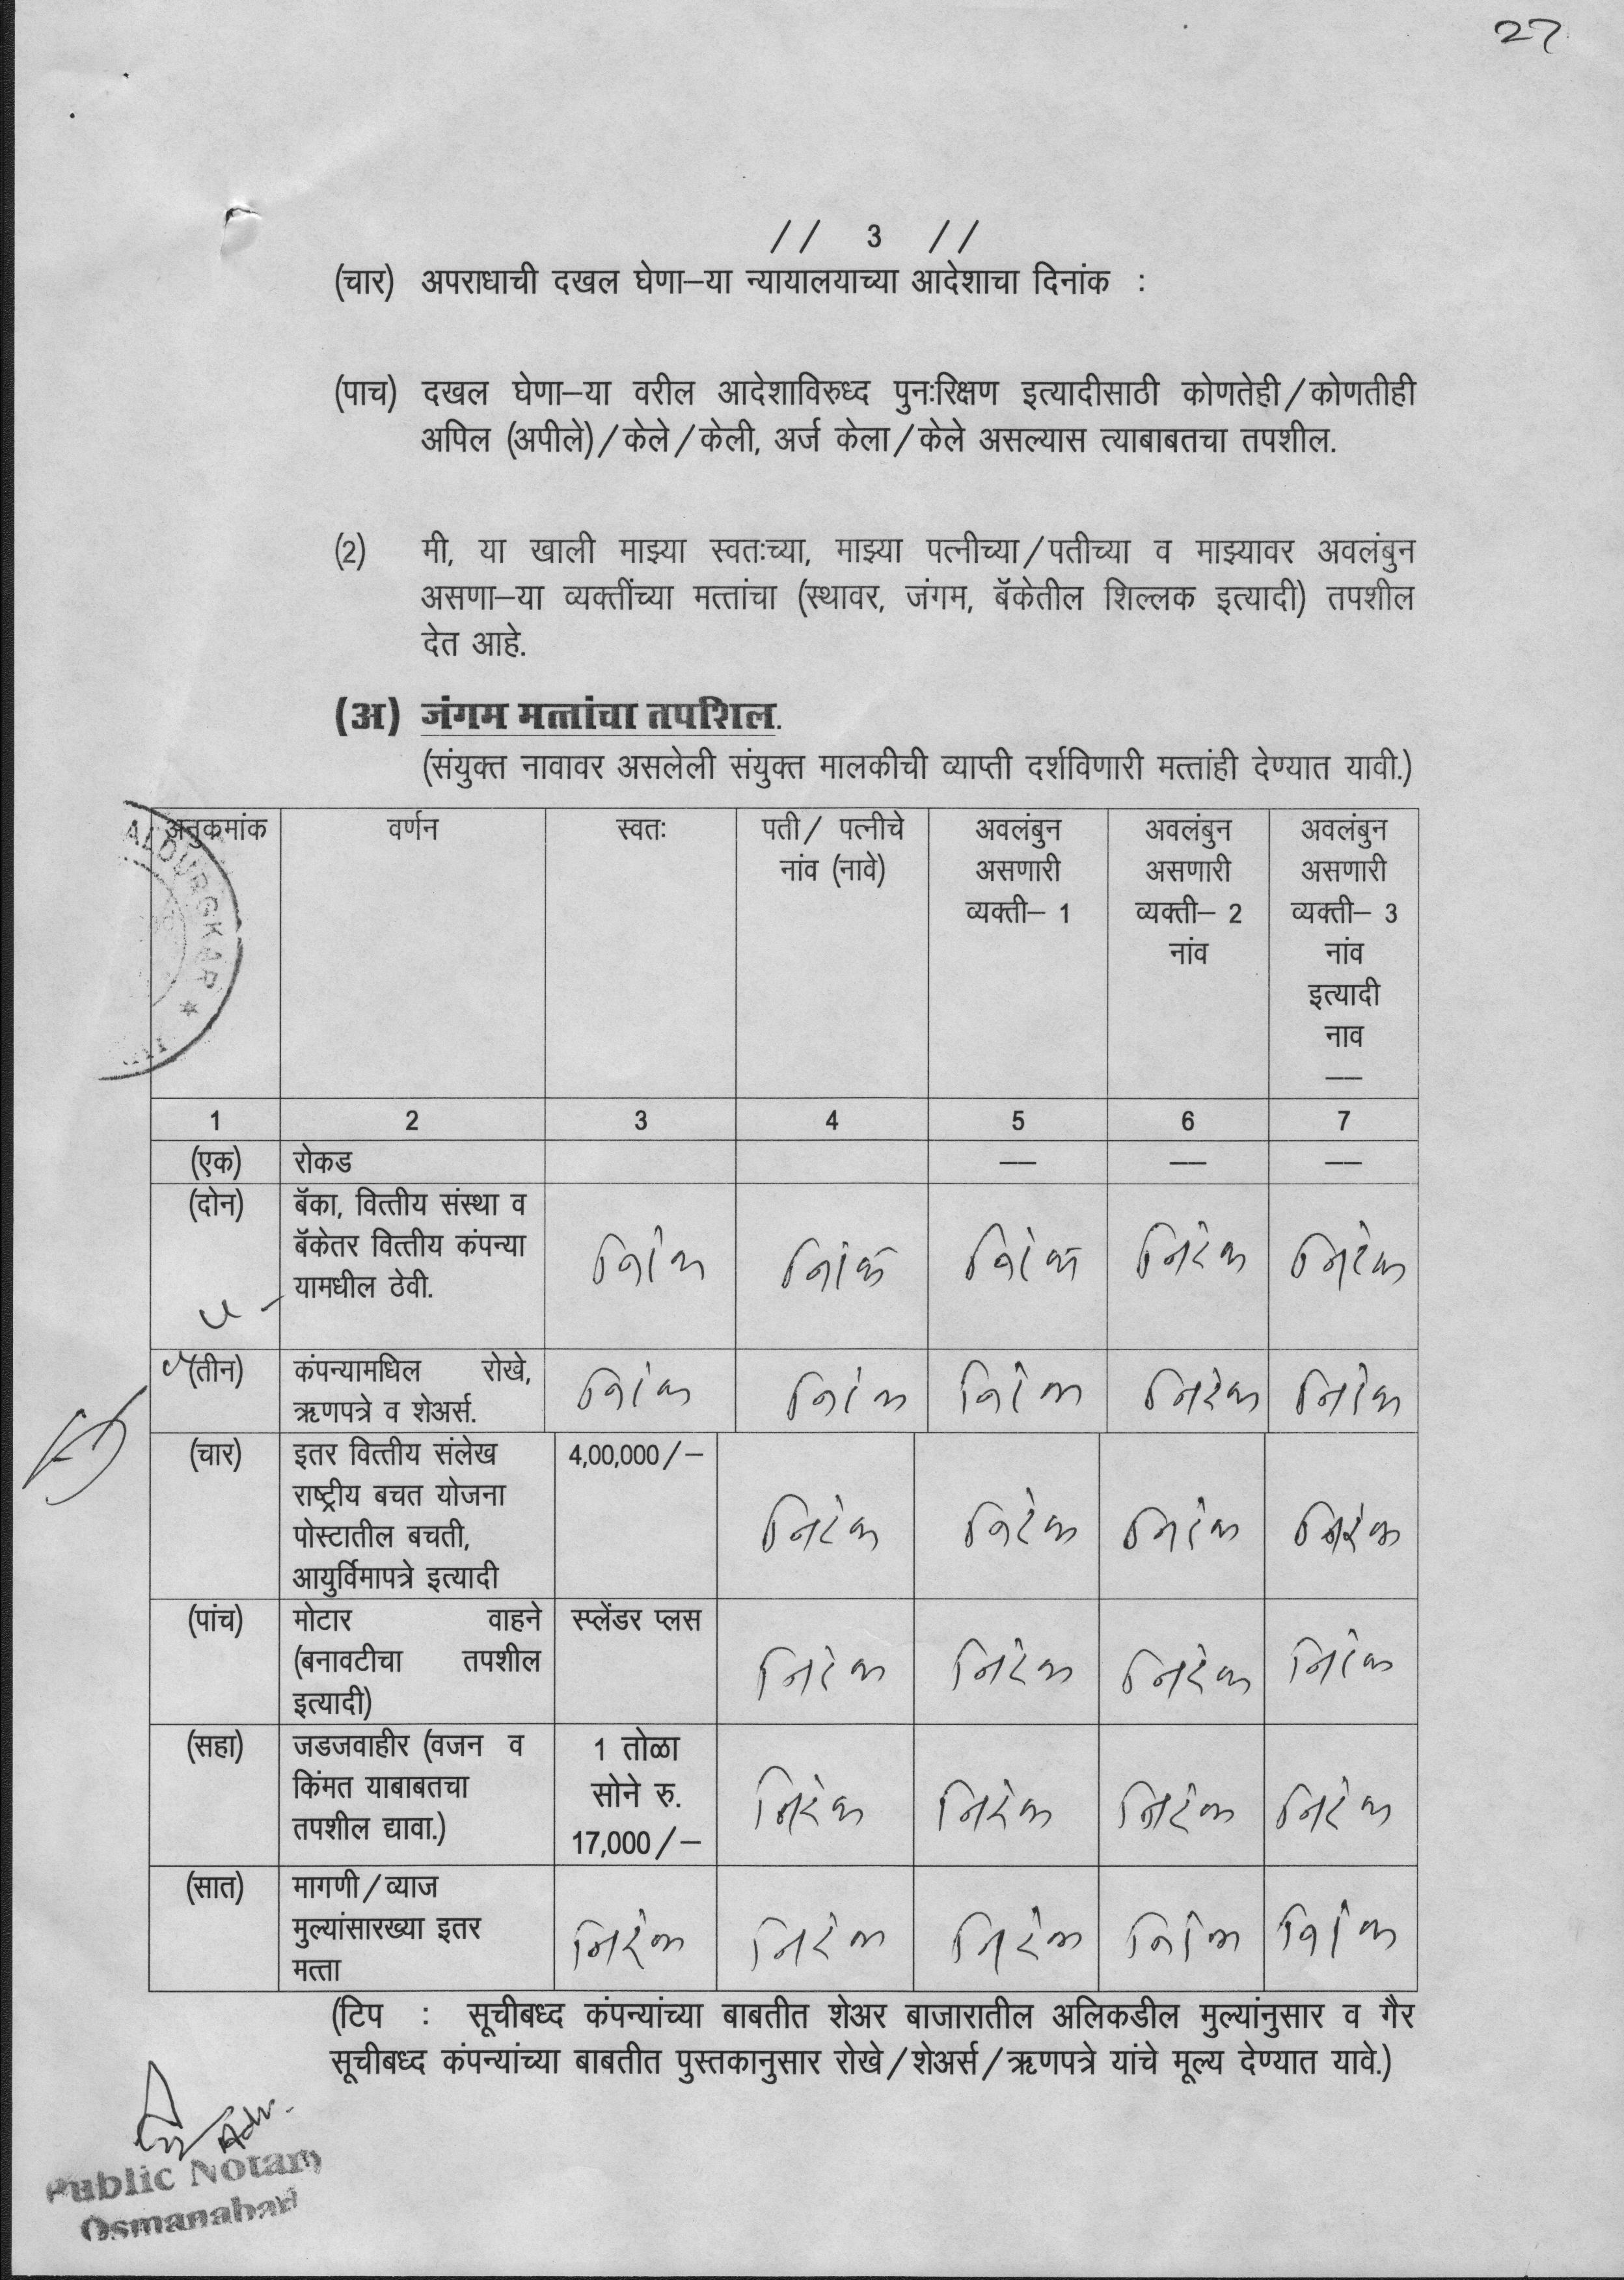 27
// 3 //
(चार) अपराधाची दखल घेणा-या न्यायालयाच्या आदेशाचा दिनांक :
(पाच) दखल घेणा-या वरील आदेशाविरुध्द पुनःरिक्षण इत्यादीसाठी कोणतेही/कोणतीही
अपिल (अपीले)/केले/केली, अर्ज केला/केले असल्यास त्याबाबतचा तपशील.
(2) मी, या खाली माझ्या स्वतःच्या, माझ्या पत्नीच्या/पतीच्या व माझ्यावर अवलंबुन
असणा-या व्यक्तींच्या मत्तांचा (स्थावर, जंगम, बॅकेतील शिल्लक इत्यादी) तपशील
देत आहे.
(अ) जंगम मत्तांचा तपशिल.
(संयुक्त नावावर असलेली संयुक्त मालकीची व्याप्ती दर्शविणारी मत्तांही देण्यात यावी.)
अनुकमांक वर्णन स्वतः पती/ पत्नीचे अवलंबुन अवलंबुन अवलंबुन
नांव (नावे) असणारी असणारी असणारी
व्यक्ती- 1 व्यक्ती- 2 व्यक्ती- 3
नांव नांव
इत्यादी
नाव
—
ALDURGKAR *
1 2 3 4 5 6 7
(एक) रोकड — — —
(दोन) बॅका, वित्तीय संस्था व
बॅकेतर वित्तीय कंपन्या निरंक निरंक निरंक निरंक निरंक
यामधील ठेवी.
(तीन) कंपन्यामधिल रोखे, निरंक निरंक निरंक निरंक निरंक
ऋणपत्रे व शेअर्स.
(चार) इतर वित्तीय संलेख 4,00,000/-
राष्ट्रीय बचत योजना
पोस्टातील बचती, निरंक निरंक निरंक निरंक
आयुर्विमापत्रे इत्यादी
(पांच) मोटार वाहने स्प्लेंडर प्लस
(बनावटीचा तपशील निरंक निरंक निरंक निरंक
इत्यादी)
(सहा) जडजवाहीर (वजन व 1 तोळा
किंमत याबाबतचा सोने रु. निरंक निरंक निरंक निरंक
तपशील द्यावा.) 17,000/-
(सात) मागणी/व्याज
मुल्यांसारख्या इतर निरंक निरंक निरंक निरंक निरंक
मत्ता
(टिप : सूचीबध्द कंपन्यांच्या बाबतीत शेअर बाजारातील अलिकडील मुल्यांनुसार व गैर
सूचीबध्द कंपन्यांच्या बाबतीत पुस्तकानुसार रोखे/शेअर्स/ऋणपत्रे यांचे मूल्य देण्यात यावे.)
Adv.
Public Notary
Osmanabad